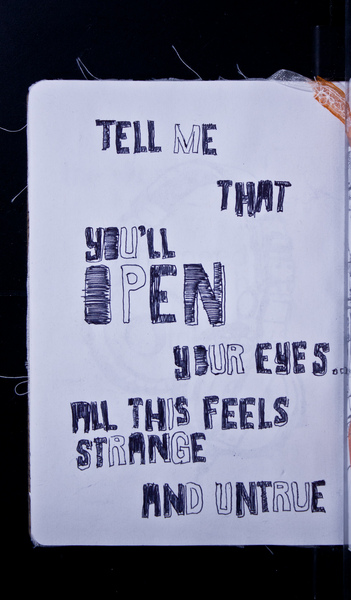 TELL ME
THAT
YOU'LL
OPEN
YOUR EYES..
ALL THIS FEELS
STRANGE
AND UNTRUE